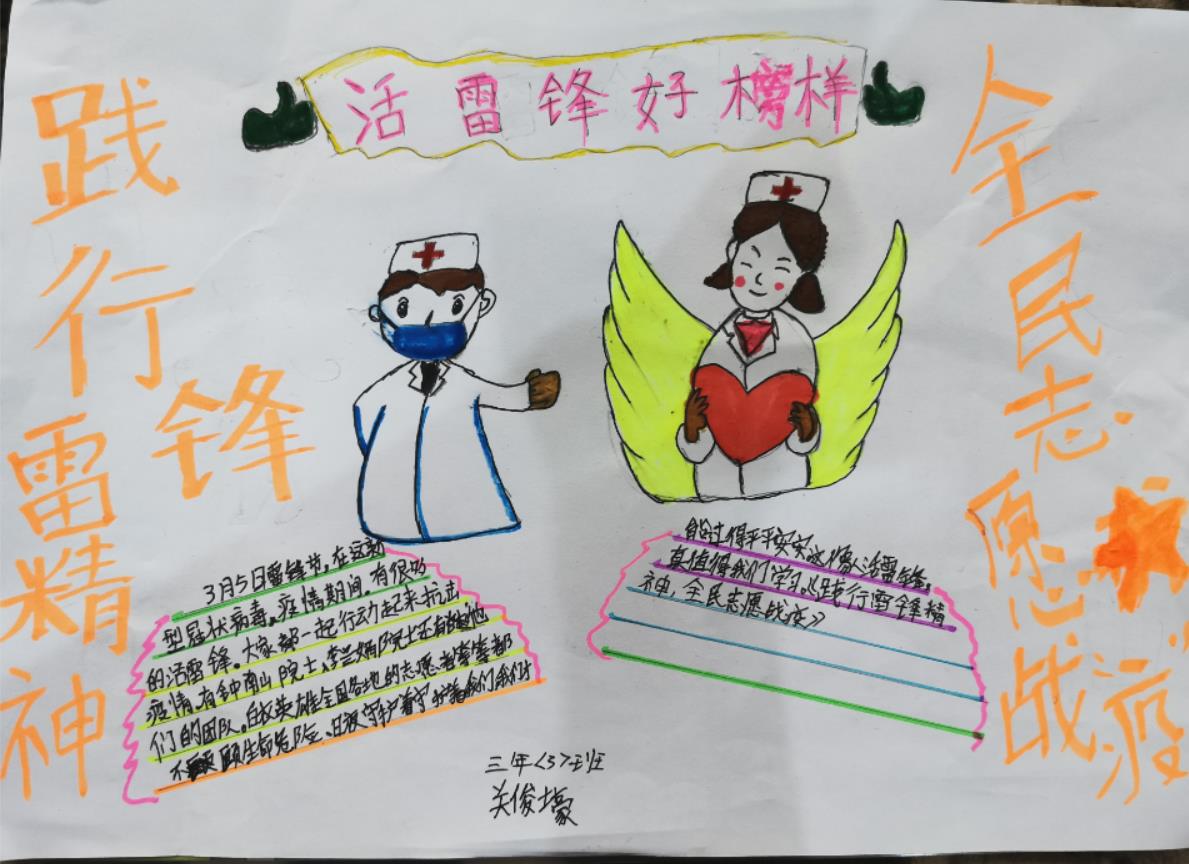 活雷锋好榜样
践行雷锋精神
全民志愿战疫
3月5日雷锋节，在这新
型冠状病毒。疫情期间。有很多
的活雷锋。大家都一起行动起来抗击
疫情。有钟南山院士、李兰娟院士还有他
们的团队。白衣英雄全国各地的志愿者等等都
不顾生命危险。日夜守护着守护着我们我们才
能过得平平安安这像人活雷锋。
真值得我们学习。《践行雷锋精
神，全民志愿战疫》
三年<3>班
关俊壕